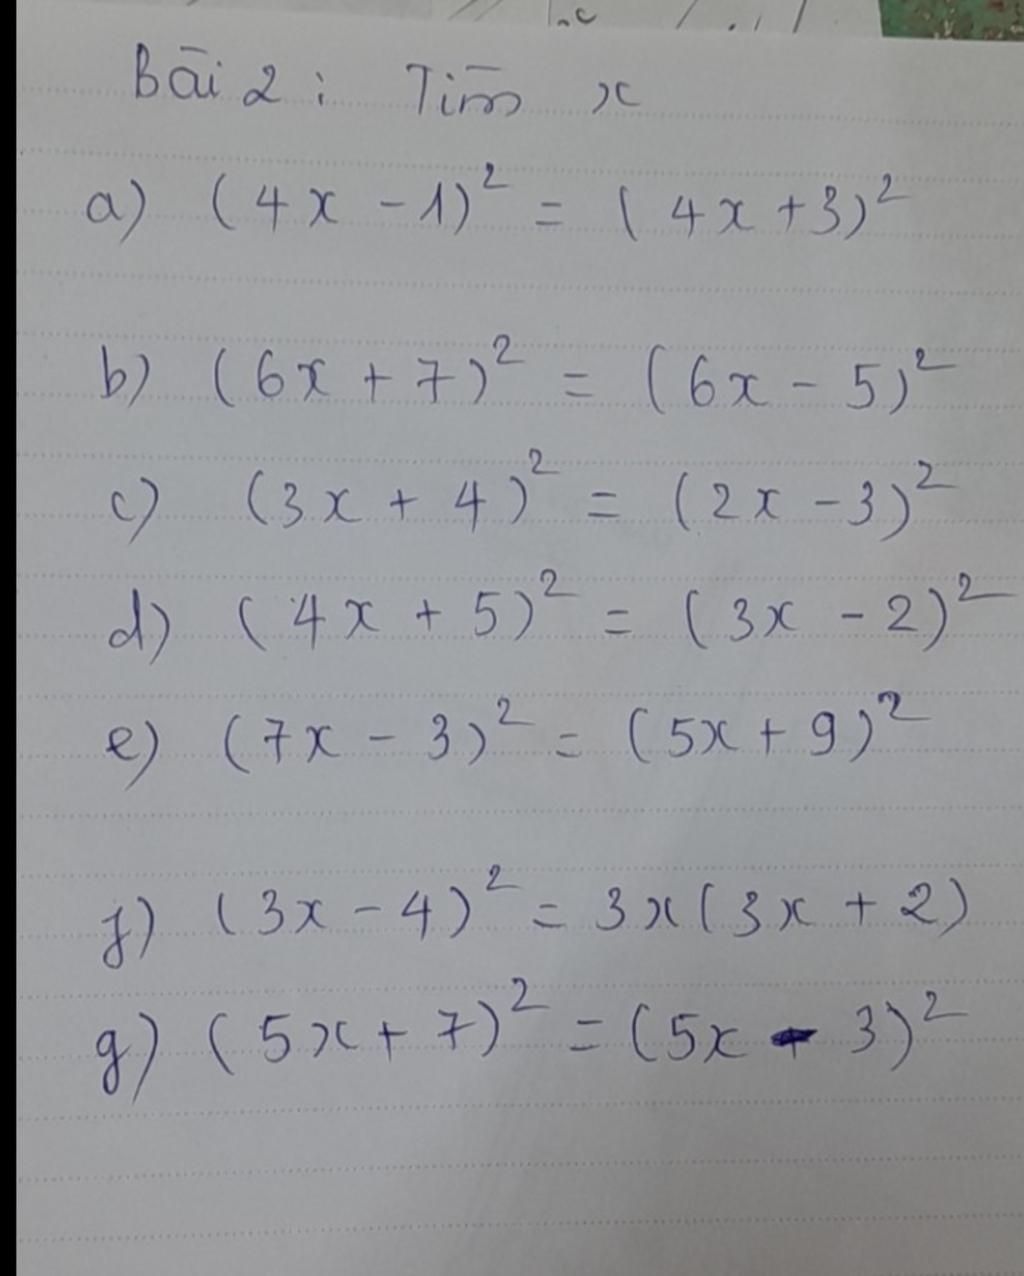 Bài 2 : Tìm x
a) (4x - 1)² = (4x + 3)²
b) (6x + 7)² = (6x - 5)²
c) (3x + 4)² = (2x - 3)²
d) (4x + 5)² = (3x - 2)²
e) (7x - 3)² = (5x + 9)²
f) (3x - 4)² = 3x(3x + 2)
g) (5x + 7)² = (5x - 3)²